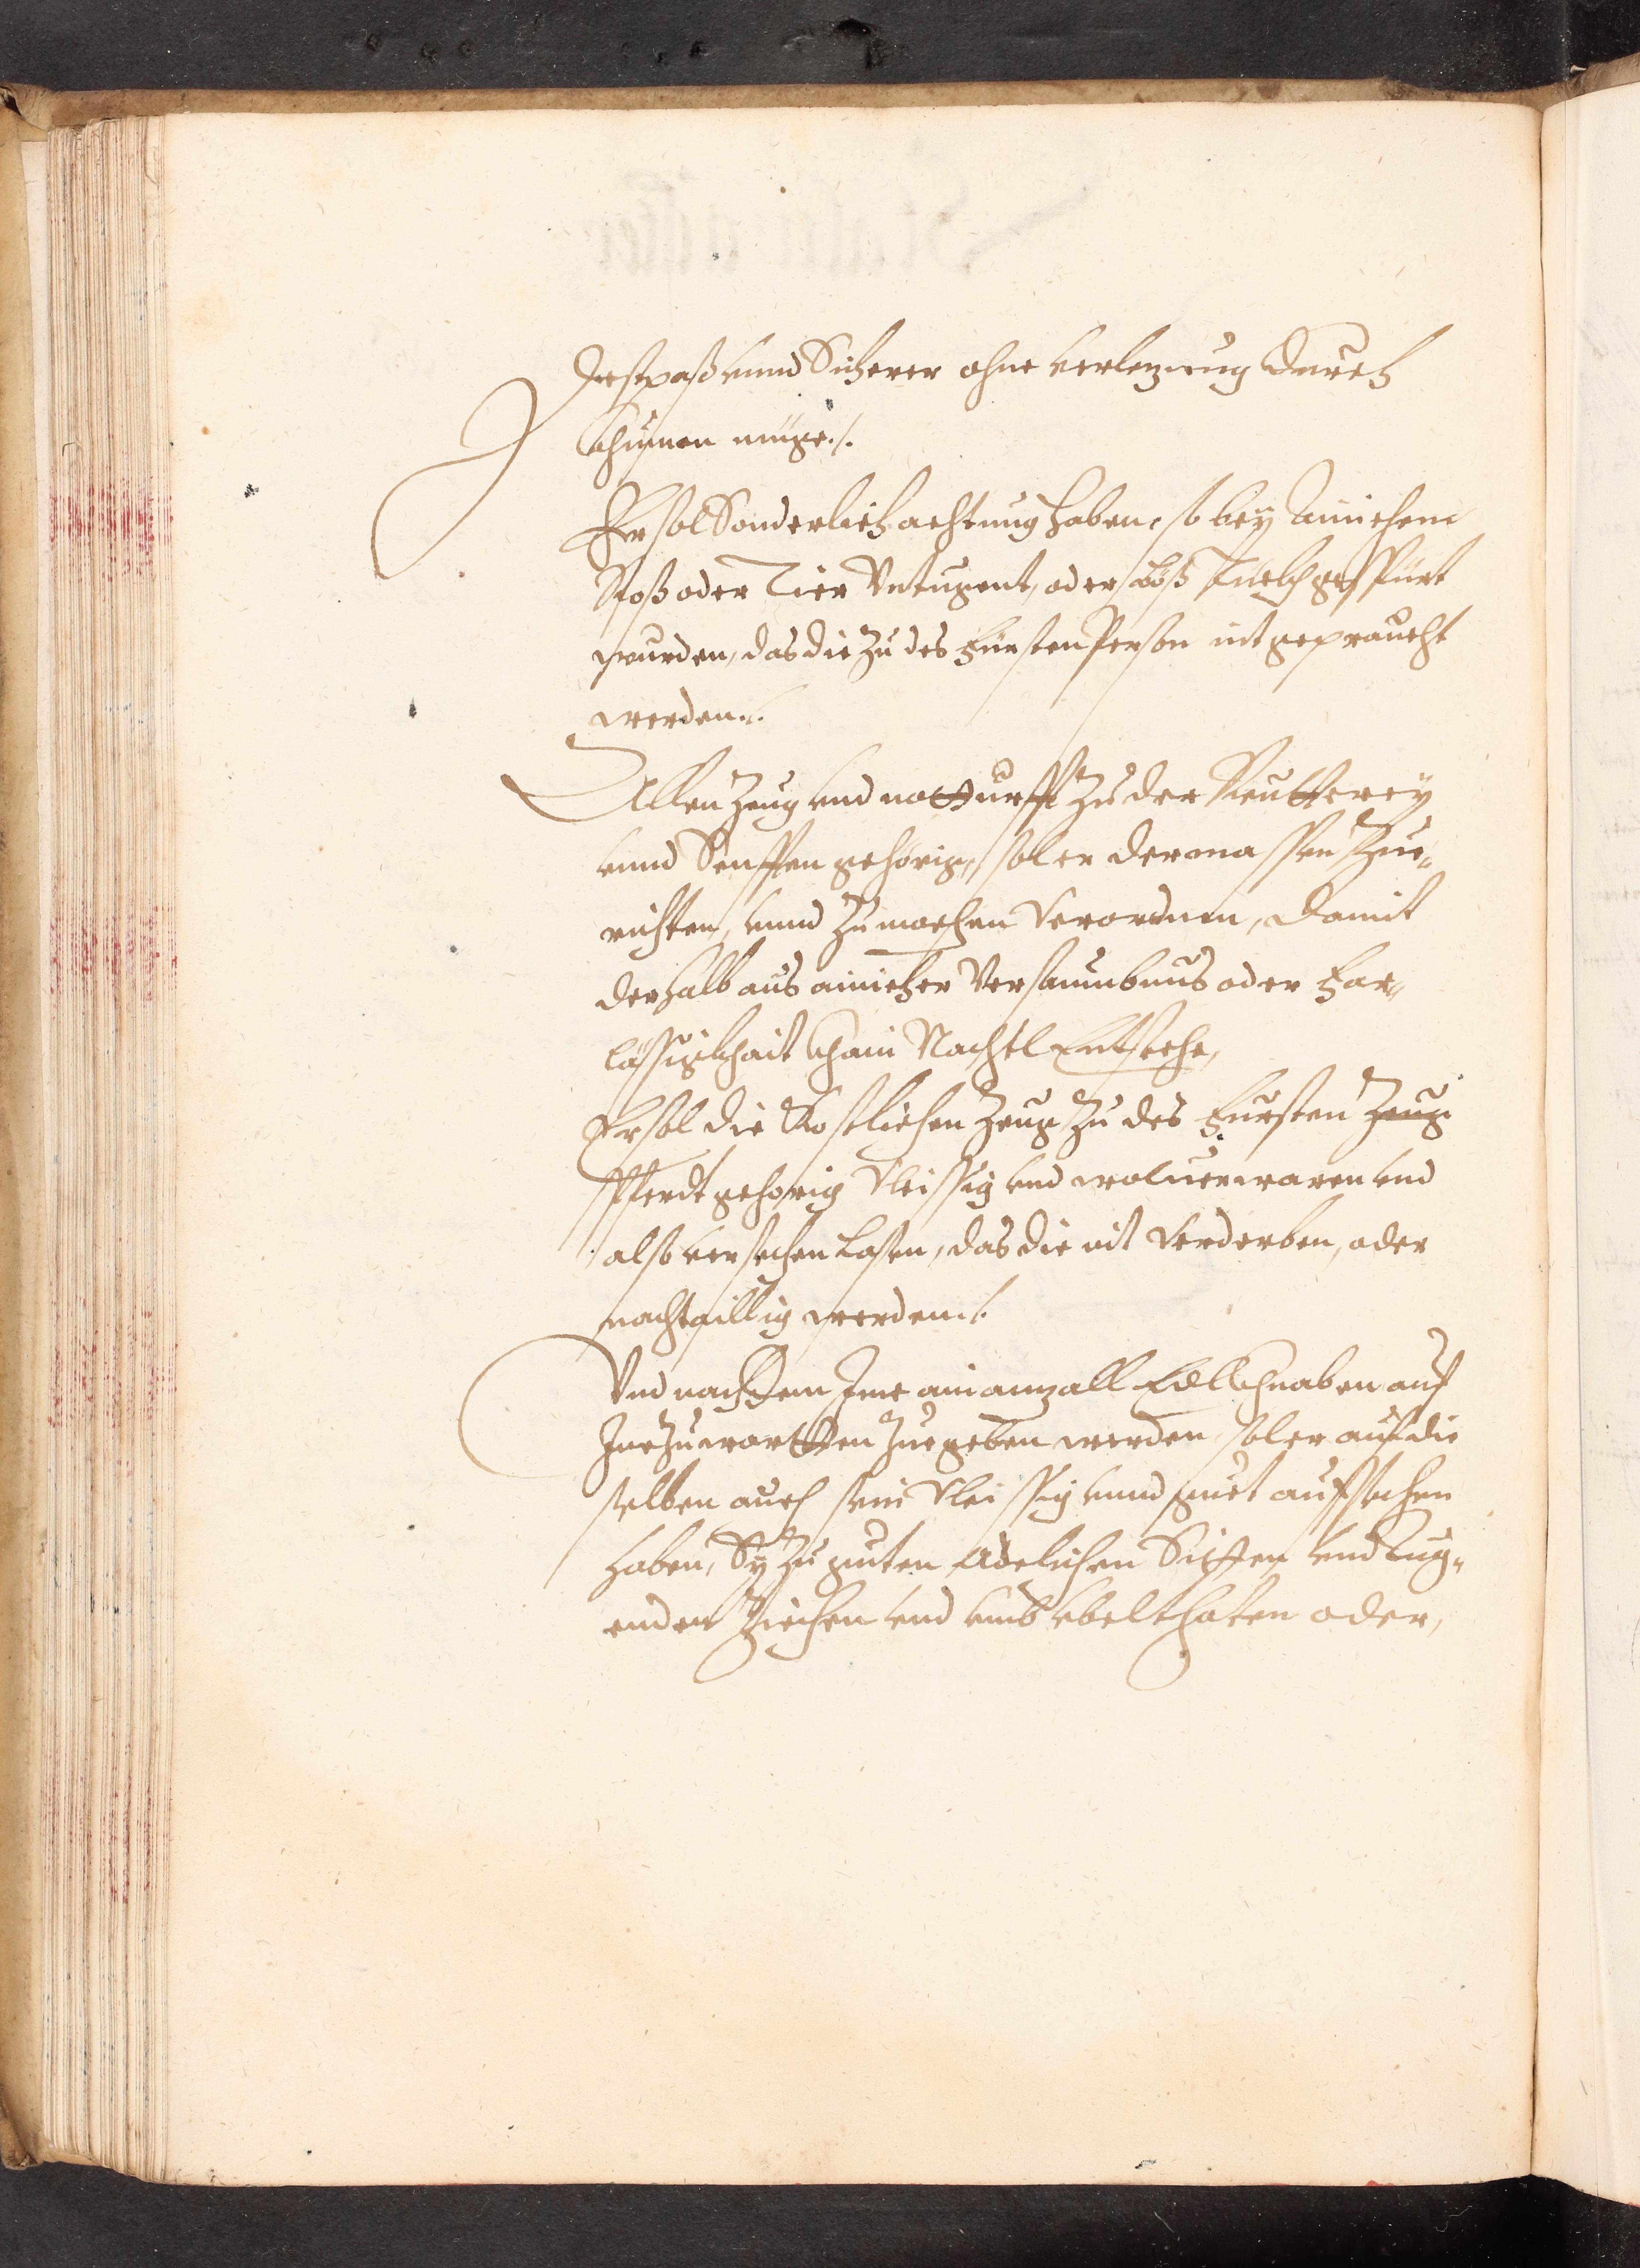 destpaß unnd Sicherer ohne verlezung Durch
khumen müge./.
Er sol Sonderlich achtung haben, so bey Ainichem
Roß oder Tier Untugent, oder böß Tückh gespürt
wurden, das die zu des Fürsten Person nit gepraucht
werden./.
Allen Zeug und notturfft zu der Reutterey
unnd Senfften gehörig, sol er dermassen Zue„
richten, unnd zu machen Verordnen, damit
derhalb aus ainicher Versaumbnus oder Far„
lässigkhait khain Nachtl Entstehe,
Er sol die Kostlichen Zeug zu des Fursten Zeug
Pferdt gehorig Vleissig und wol verwaren und
also versechen Lasen, das die nit Verderben, oder
nachtaillig werden./.
Und nachdem Ime ain anzall Edlkhnaben auf
Ine zu wartten zuegeben werden, sol er auf die
selben auch sein Vleissig unnd guet aufsechen
haben, Sy zu guten Adelichen Sitten und Tug„
enden Ziechen und umb ubelthaten oder,